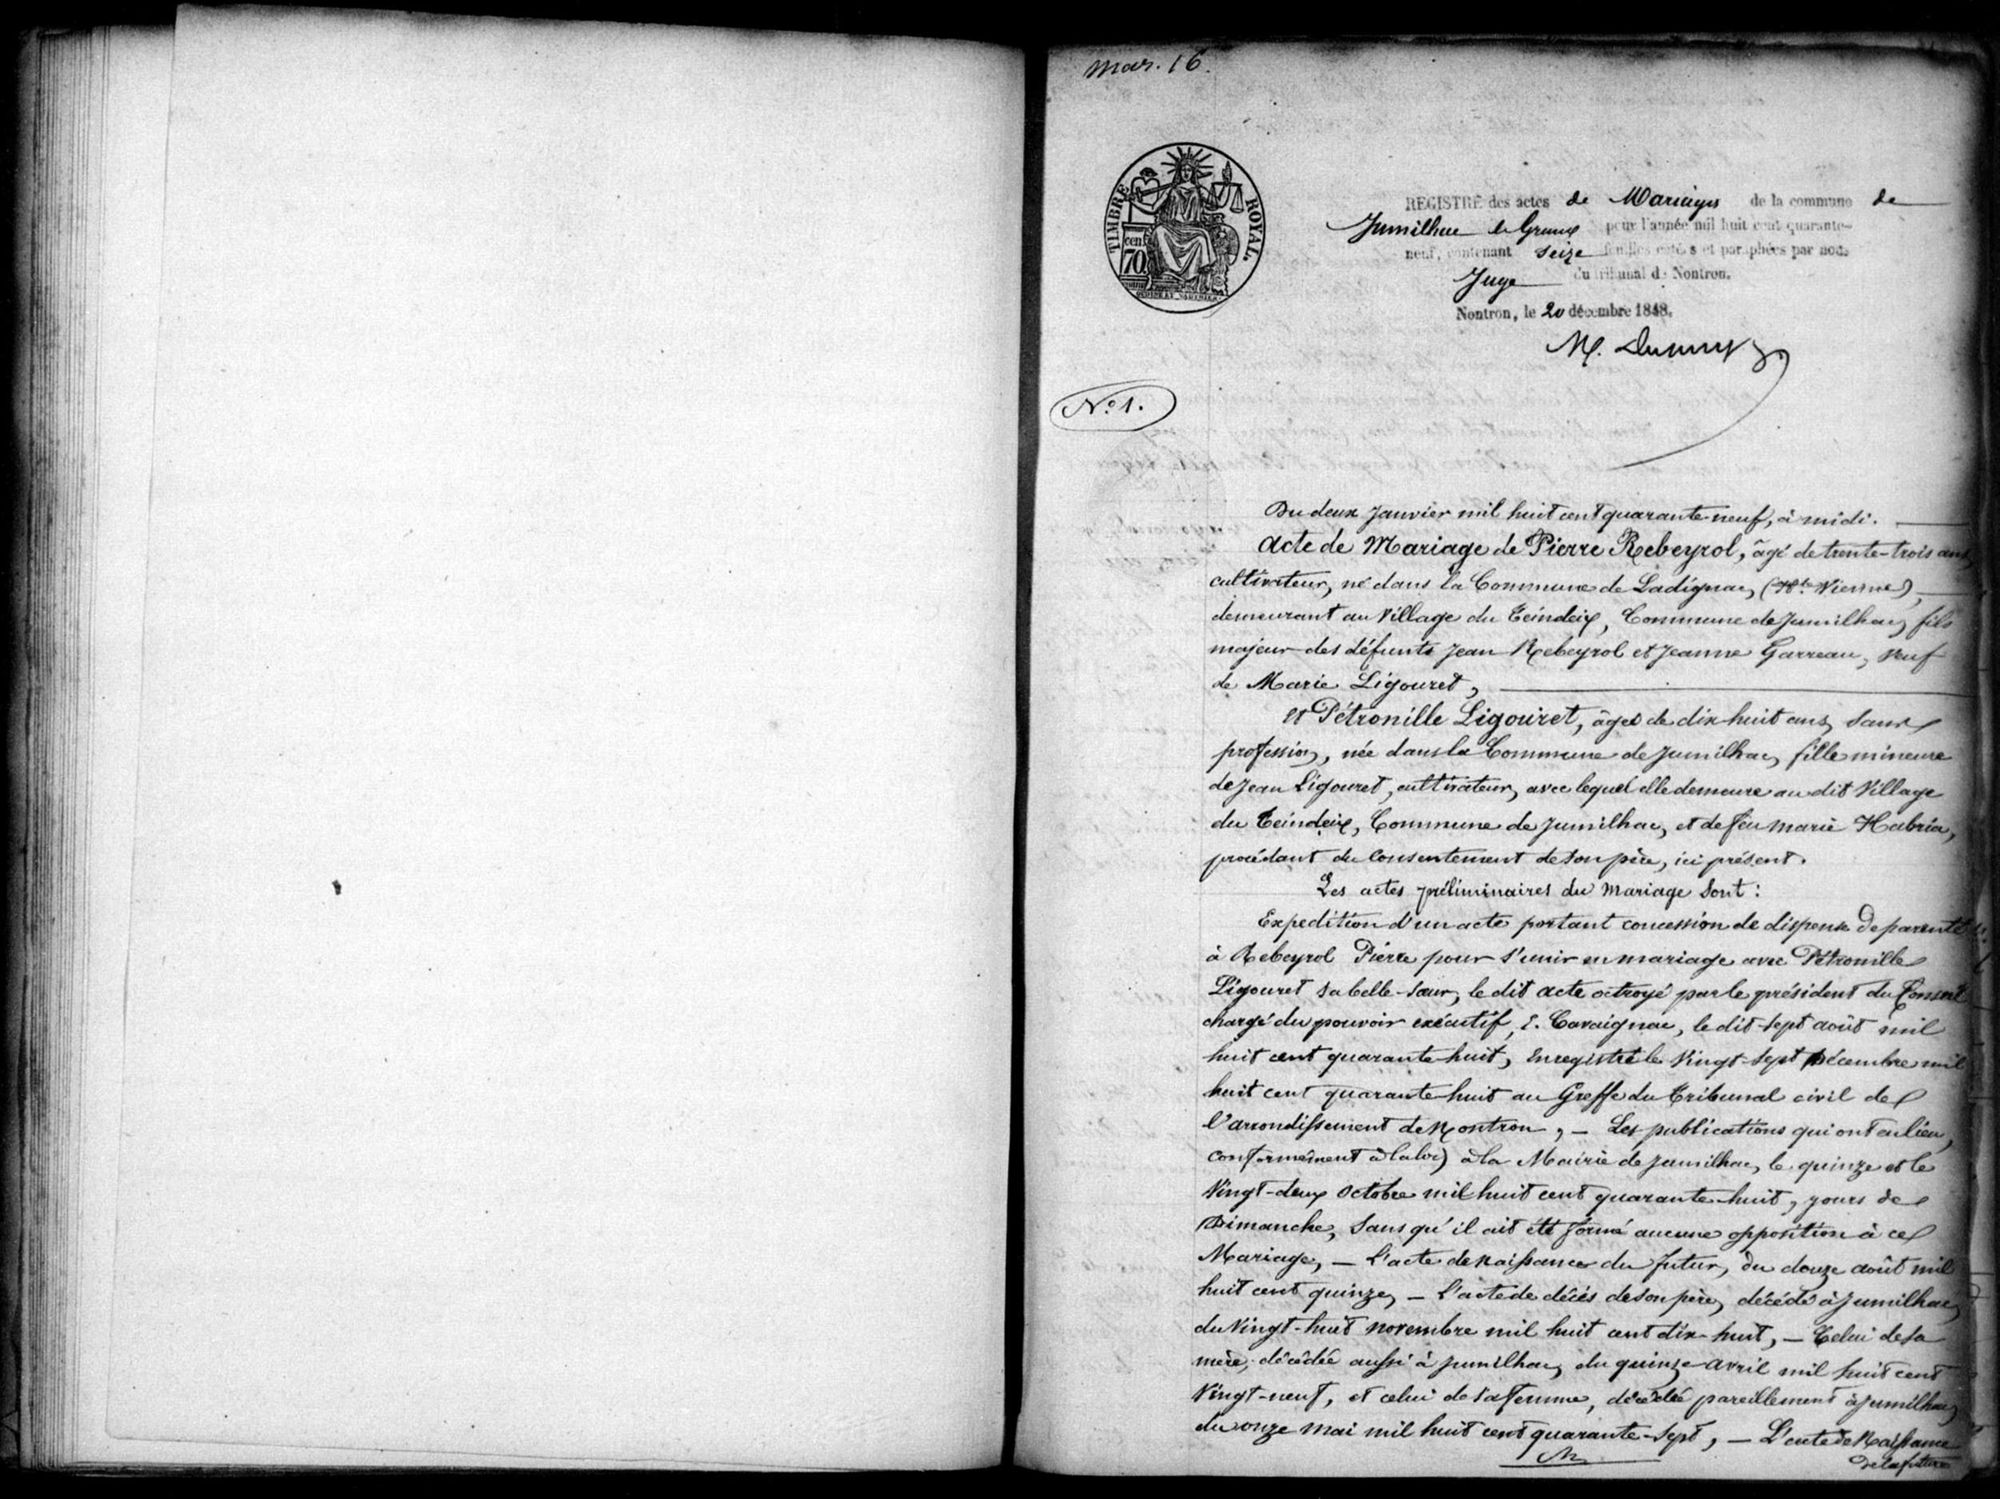 Mar. 16.
TIMBRE ROYAL.
cen.
70
REGISTRE des actes de Mariages de la commune de
Jumilhac le Grand pour l'année mil huit cent quarante-
neuf, contenant seize feuilles cotées et paraphées par nous
Juge du tribunal de Nontron.
Nontron, le 20 décembre 1848.
N° 1.
Du deux Janvier mil huit cent quarante-neuf, à midi.
Acte de Mariage de Pierre Rebeyrol, âgé de trente-trois ans,
cultivateur, né dans la Commune de Ladignac, (Hte Vienne),
demeurant au Village du Teindeix, Commune de Jumilhac, fils
majeur des défunts Jean Rebeyrol et Jeanne Garreau, Veuf
de Marie Ligouret,
et Pétronille Ligouret, âgée de dix-huit ans, sans
profession, née dans la Commune de Jumilhac, fille mineure
de Jean Ligouret, cultivateur, avec lequel elle demeure au dit Village
du Teindeix, Commune de Jumilhac, et de feu Marie Habria,
procédant du Consentement de son père, ici présent.
Les actes préliminaires du Mariage sont :
Expedition d'un acte portant concession de dispense de parenté
à Rebeyrol Pierre pour s'unir en mariage avec Pétronille
Ligouret sa belle-sœur, le dit acte octroyé par le président du Conseil
chargé du pouvoir exécutif, E. Cavaignac, le dit-sept août mil
huit cent quarante-huit, Enregistré le Vingt-sept Décembre mil
huit cent quarante-huit au Greffe du Tribunal civil de
l'arrondissement de Nontron, — Les publications qui ont eu lieu,
conformément à la loi, à la Mairie de Jumilhac, le quinze et le
Vingt-deux Octobre mil huit cent quarante-huit, jours de
Dimanche, sans qu'il ait été formé aucune opposition à ce
Mariage, — L'acte de Naissance du futur, du douze août mil
huit cent quinze, — L'acte de décès de son père, décédé à Jumilhac,
du Vingt-huit novembre mil huit cent dix-huit, — Celui de sa
mère, décédée aussi à Jumilhac, du quinze avril mil huit cent
Vingt-neuf, et celui de sa femme, décédée pareillement à Jumilhac,
du onze mai mil huit cent quarante-sept, — L'acte de Naissance
de la future